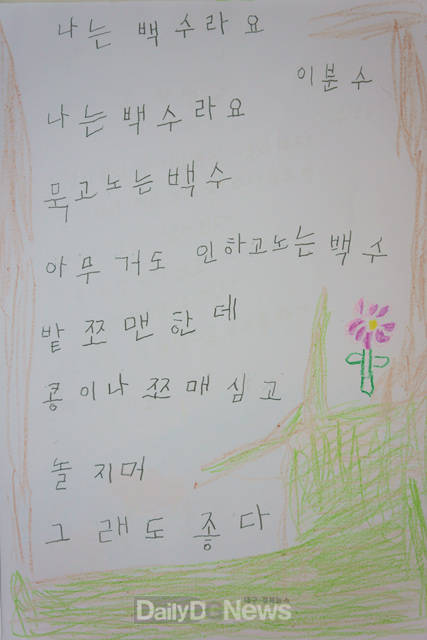 나는 백수라요
이분수
나는백수라요
묵고노는백수
아무거도 인하고노는백수
밭쪼맨한데
콩이나쪼매심고
놀지머
그래도좋다
대구·경북뉴스
DailyDGNews